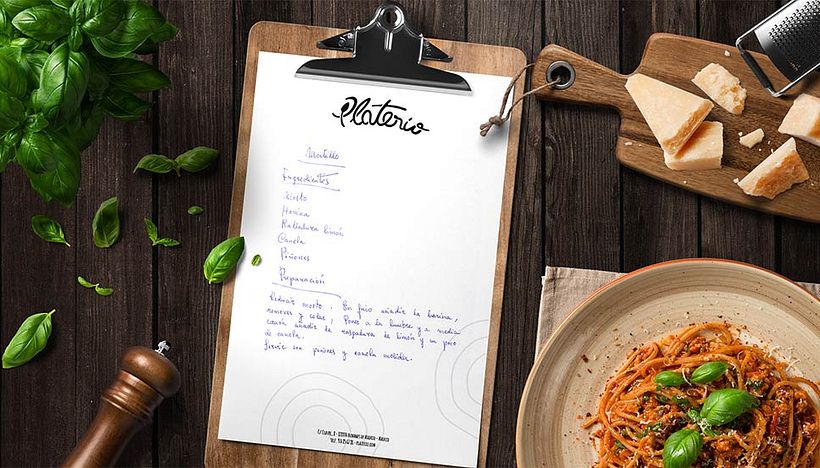 Platerio
Mostillo
Ingredientes
Mosto
Harina
Ralladura limón
Canela
Piñones
Preparación
Reducir mosto. En frio añadir la harina,
remover y colar; Poner a la lumbre y a media
cocción añadir la raspadura de limón y un poco
de canela.
Servir con piñones y canela molida.